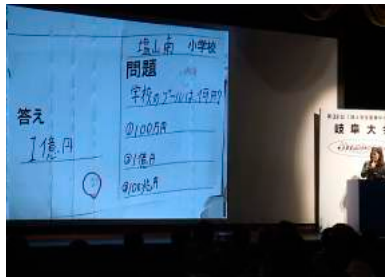 塩山南 小学校
問題
学校のプールは、何円?
①100万円
②1億円
③105億円
答え
1億円
②
岐阜大